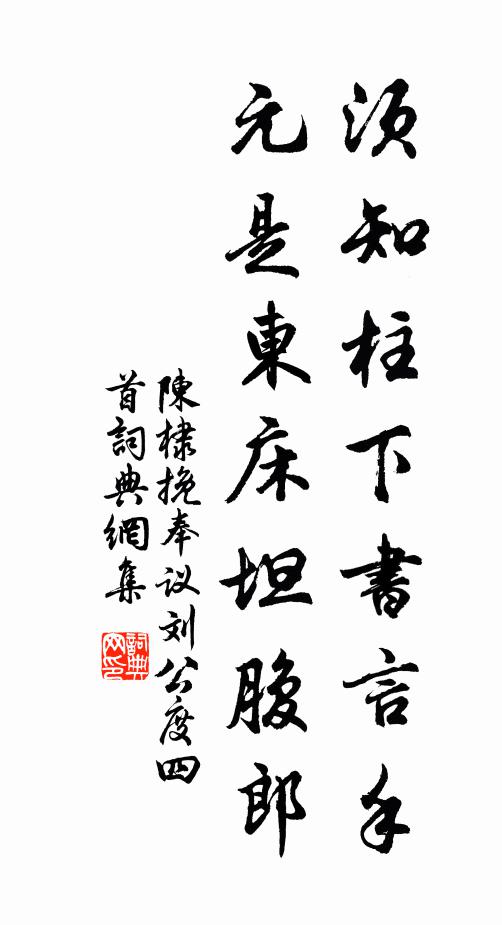 须知柱下書言手
元是東床坦腹郎
陳棣挽奉议刘公度四
首詞典網集
詞典网印